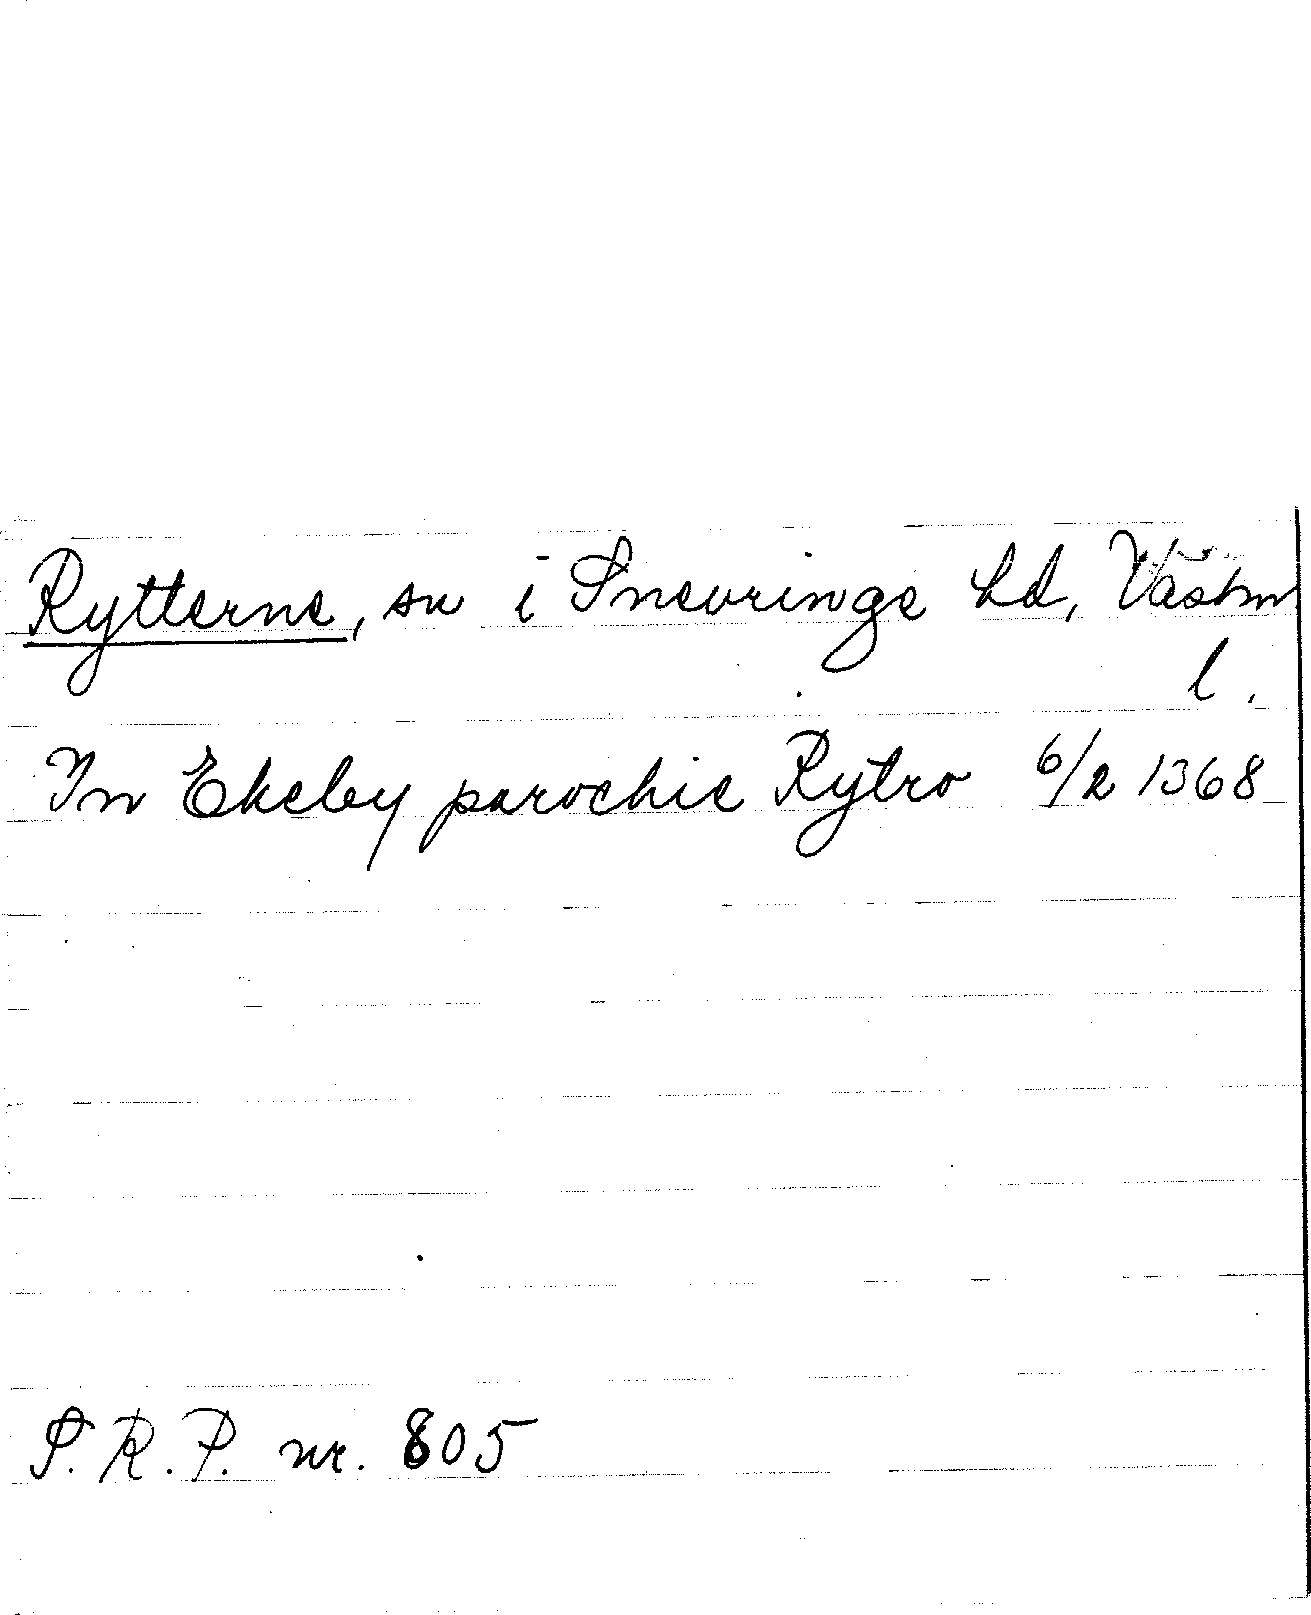 Rytterne, sn i Snevringe hd, Västm
l.
In Ekeby parochie Rytro 6/2 1368
S. R. P. nr. 805